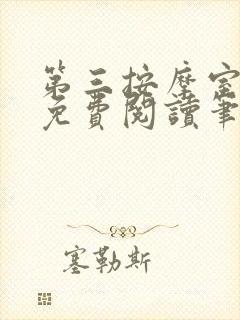 第三按摩室
免費閱讀筆
塞勒斯